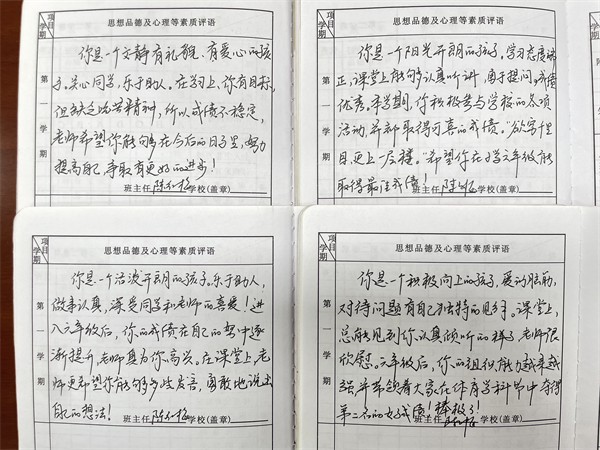 项目
学期
思想品德及心理等素质评语
第一学期
你是一个文静有礼貌、有爱心的孩
子。关心同学,乐于助人。在学习上,你有目标,
但缺乏吃苦精神,所以成绩不稳定,
老师希望你能够在今后的日子里,努力
提高自己,争取有更好的进步!
班主任
学校(盖章)
思想品德及心理等素质评语
项目
学期
第一学期
你是一个阳光开朗的孩子。学习态度端
正,课堂上能够认真听讲,勇于提问,成绩
优秀。本学期,你积极参与学校的各项
活动,并都取得可喜的成绩。“欲穷千里
目,更上一层楼。”希望你在小学六年级能
取得最佳成绩!
班主任
学校(盖章)
项目
学期
思想品德及心理等素质评语
第一学期
你是一个活泼开朗的孩子。乐于助人,
做事认真,深受同学和老师的喜爱!进
入六年级后,你的成绩在自己的努力中逐
渐提升,老师真为你高兴。在课堂上,老
师更希望你能够多些发言,勇敢地说出
自己的想法!
班主任
学校(盖章)
项目
学期
思想品德及心理等素质评语
第一学期
你是一个积极向上的孩子,爱动脑筋,
对待问题有自己独特的见解。课堂上,
总能见到你认真倾听的样子,老师很
欣慰。六年级后,你的组织能力越来越
强,并带领着大家在体育学科毕中夺得
第二名的好成绩!棒极了!
班主任
学校(盖章)